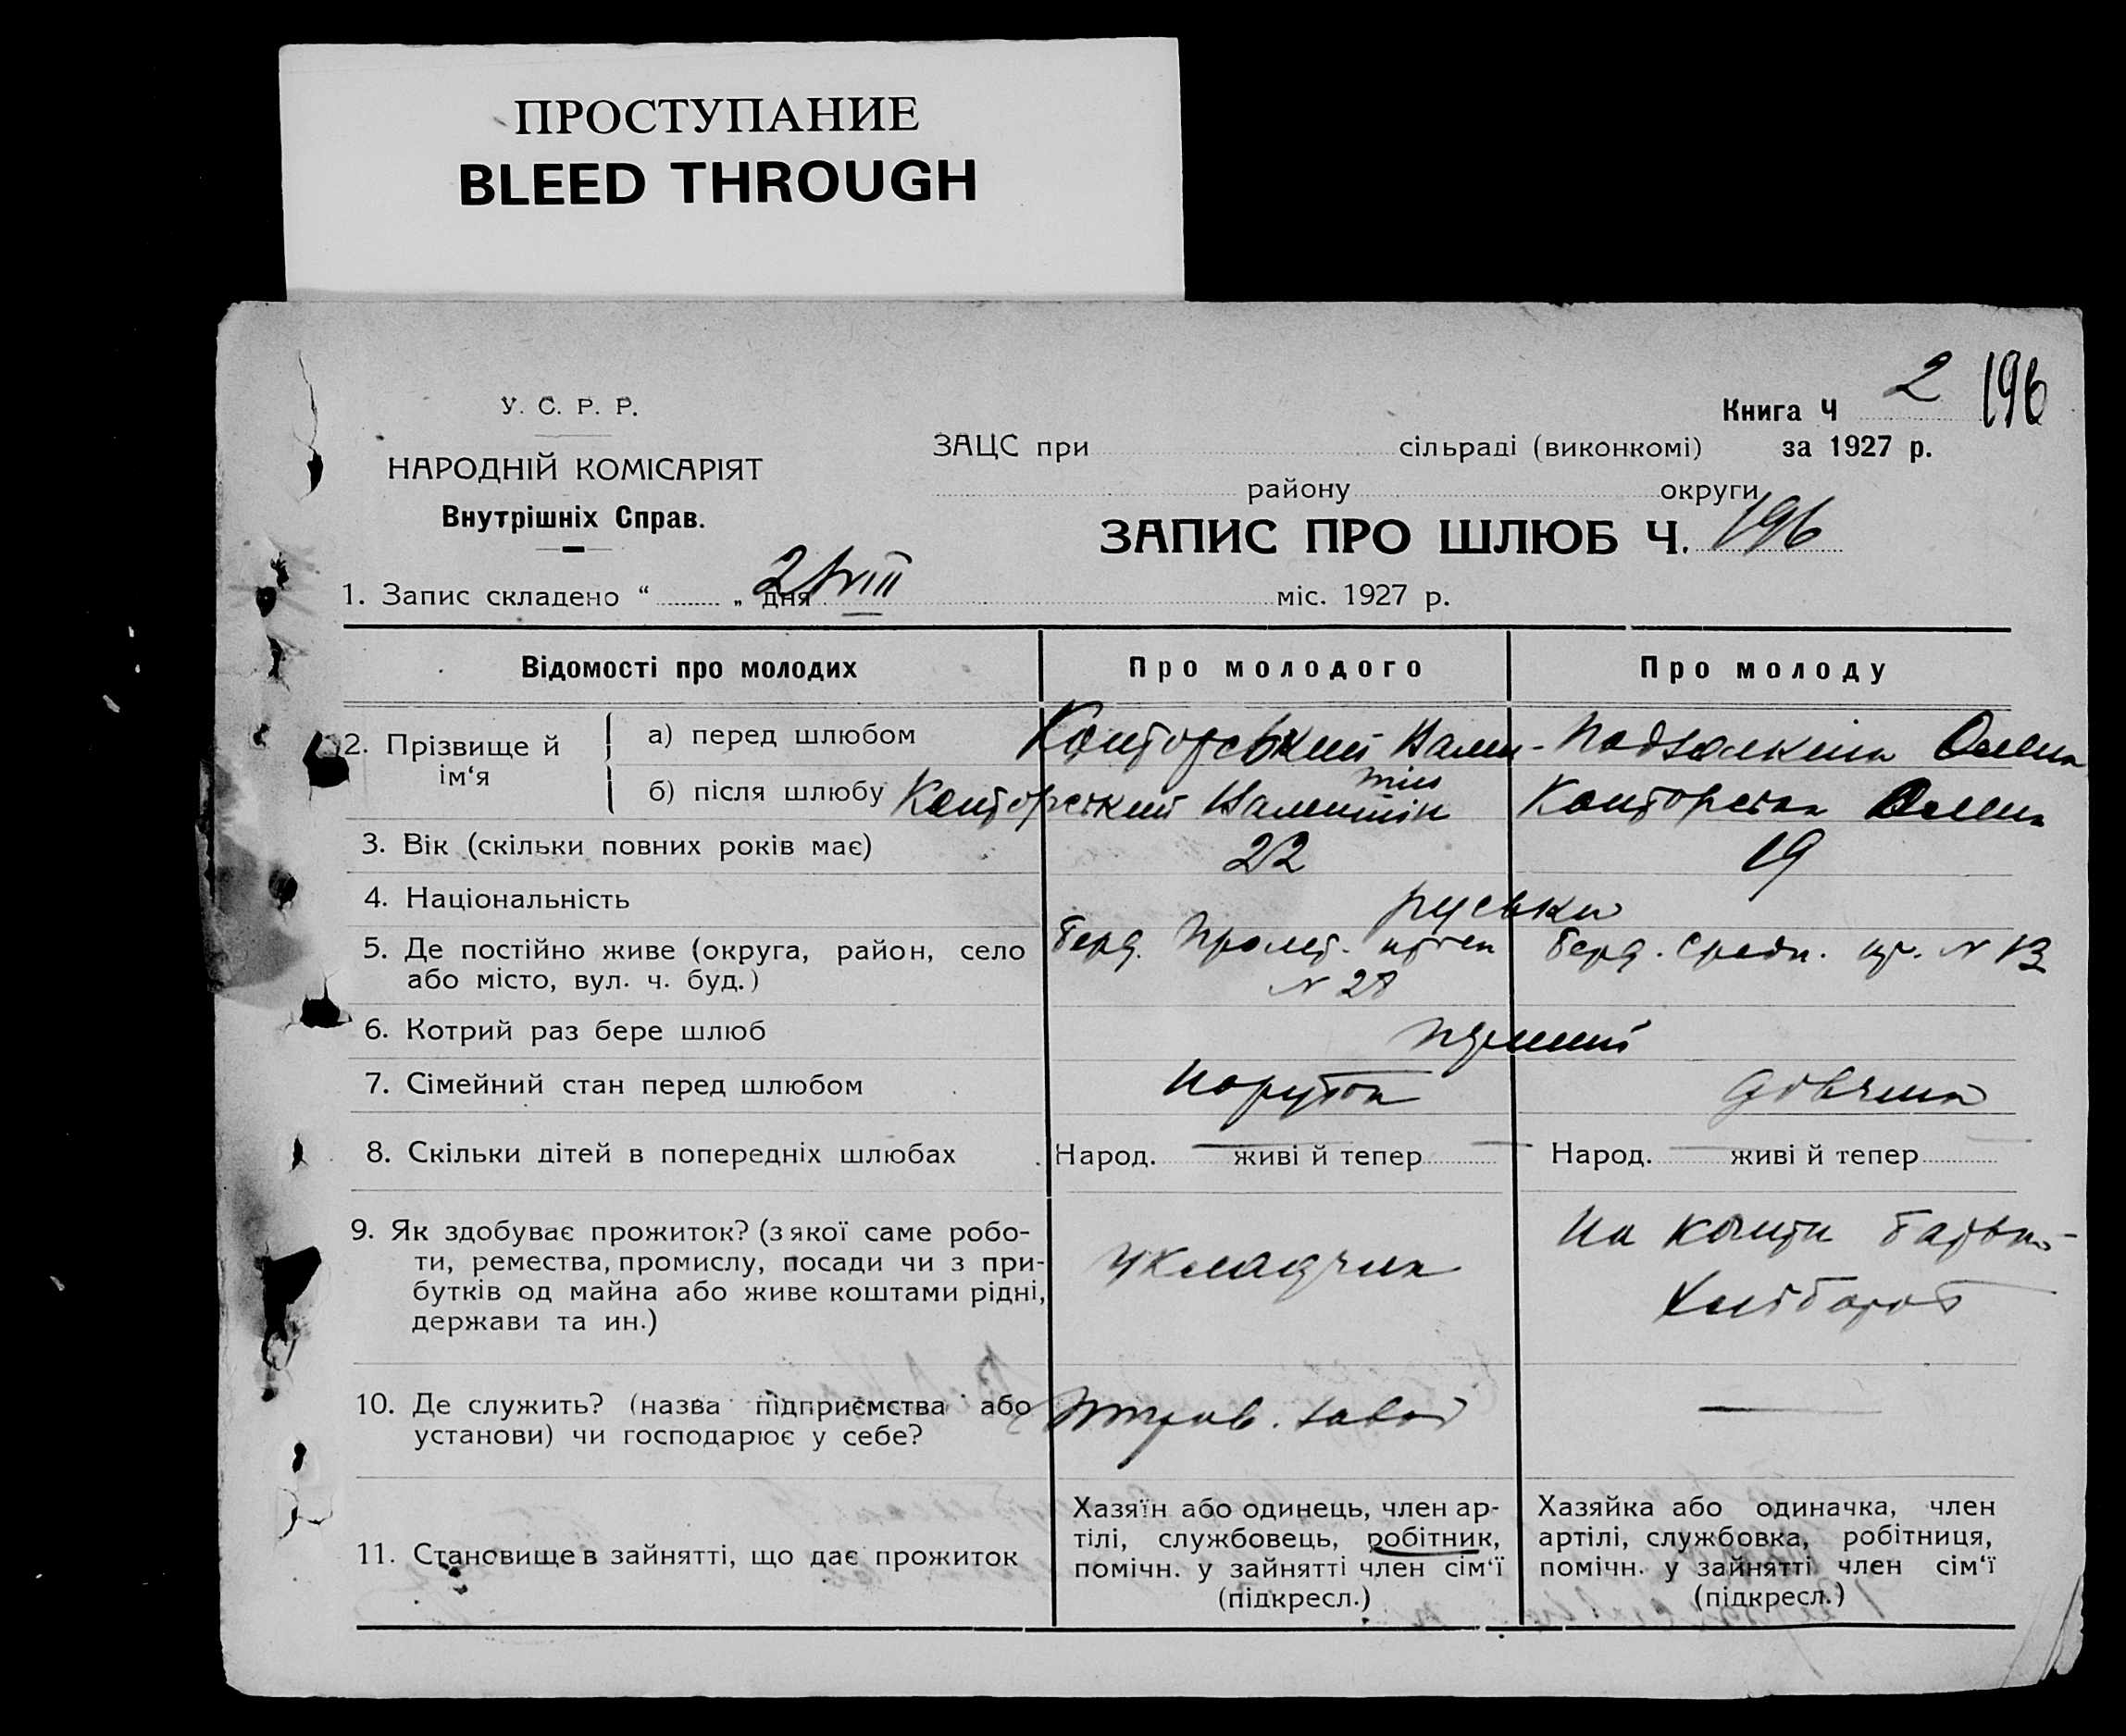 ПРОСТУПАНИЕ
BLEED THROUGH
2 196
У. С. Р. Р.
Книга Ч
НАРОДНІЙ КОМІСАРІЯТ
ЗАЦС при сільраді (виконкомі) за 1927 р.
Внутрішніх Справ.
району округи
ЗАПИС ПРО ШЛЮБ Ч. 196
1. Запис складено “ „ дня VIII міс. 1927 р.
Відомості про молодих Про молодого Про молоду
2. Прізвище й ім‘я
а) перед шлюбом Конторський
б) після шлюбу Конторський Конторська
3. Вік (скільки повних років має) 22 19
4. Національність руськи
5. Де постійно живе (округа, район, село Берд. Пролет. Берд. № 13
або місто, вул. ч. буд.) № 28
6. Котрий раз бере шлюб перший
7. Сімейний стан перед шлюбом парубок дівчина
8. Скільки дітей в попередніх шлюбах Народ. живі й тепер Народ. живі й тепер
9. Як здобуває прожиток? (з якої саме робо-
ти, ремества, промислу, посади чи з при-
бутків од майна або живе коштами рідні,
держави та ин.)
укладчик
На кошти батьк-
хлібороб
10. Де служить? (назва підприємства або
установи) чи господарює у себе?
завод
11. Становище в зайнятті, що дає прожиток
Хазяїн або одинець, член ар-
тілі, службовець, робітник,
помічн. у зайнятті член сім‘ї
(підкресл.)
Хазяйка або одиначка, член
артілі, службовка, робітниця,
помічн. у зайнятті член сім‘ї
(підкресл.)